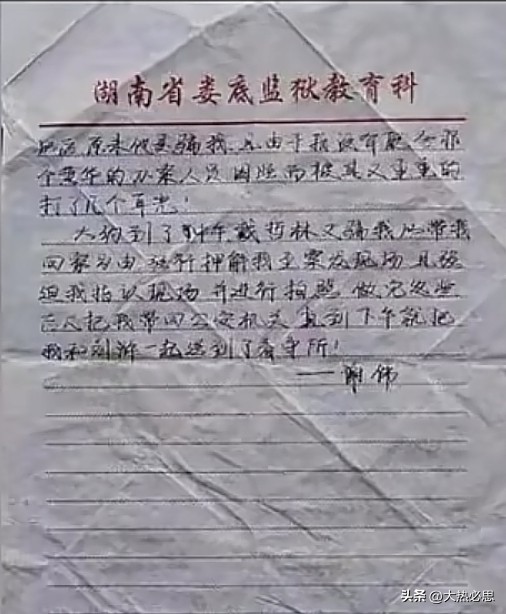 湖南省娄底监狱教育科
原来他是骗我 只由于我没有配合那
个害华的办案人员 因照而被其又重重的
打了几个耳光！
大约到了中午戴哲林又骗我以带我
回家为由 强行押解我至案发现场 且强
迫我指认现场 并进行拍照 做完这些
后又把我带回公安机关 直到下午就把
我和刘 一起送到了看守所！
——谢伟
头条 @大热必思